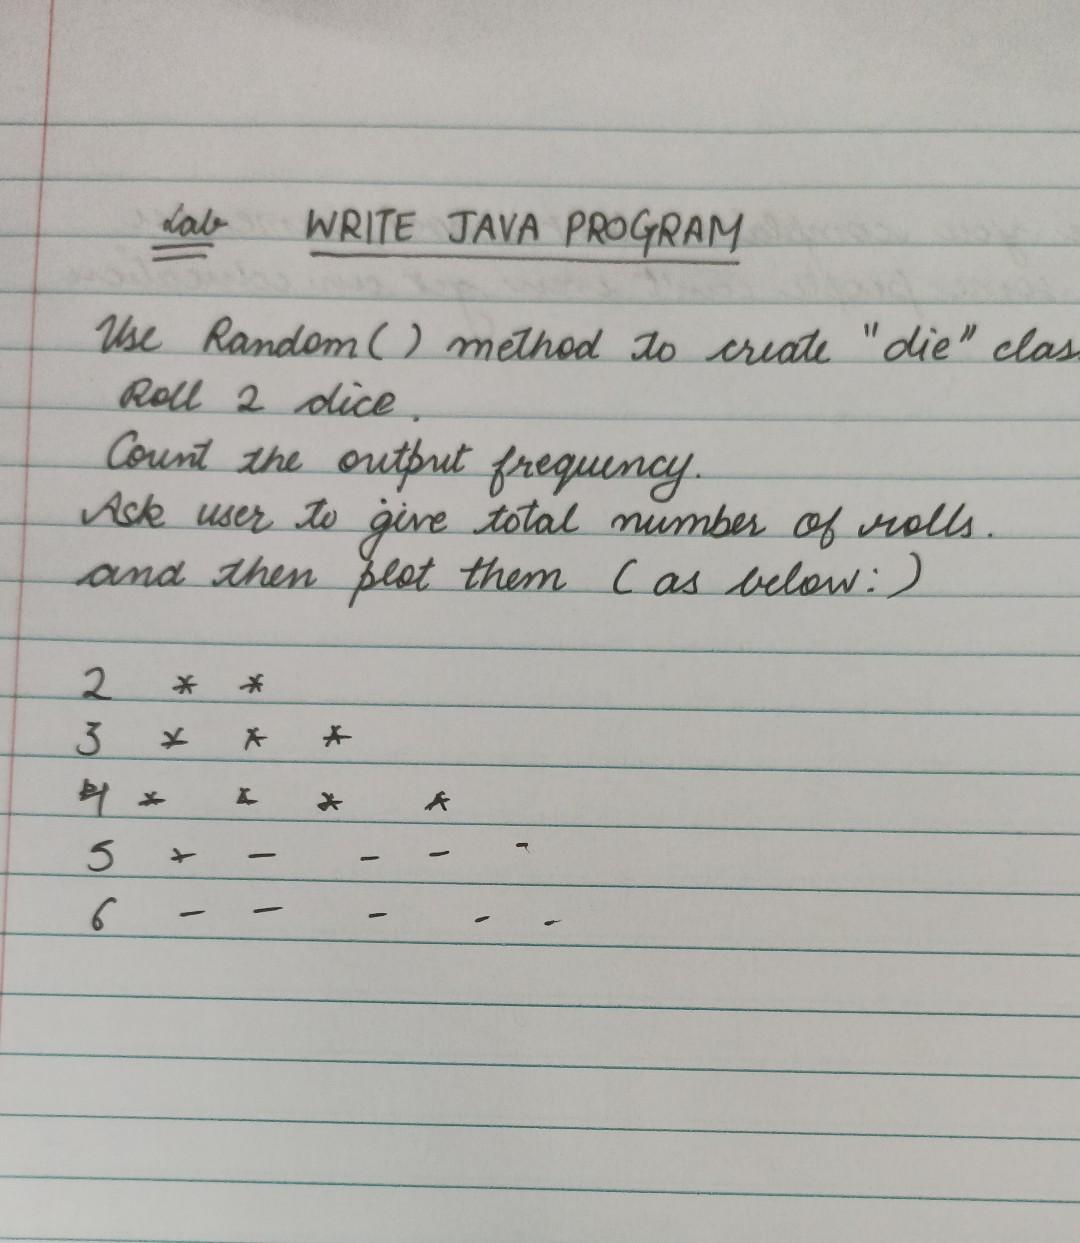 Lab WRITE JAVA PROGRAM
Use Random() method to create "die" clas
Roll 2 dice.
Count the output frequency.
Ask user to give total number of rolls.
and then plot them (as below:)
2 * *
3 * * *
4 * * * *
5 * - - - -
6 - - - - -